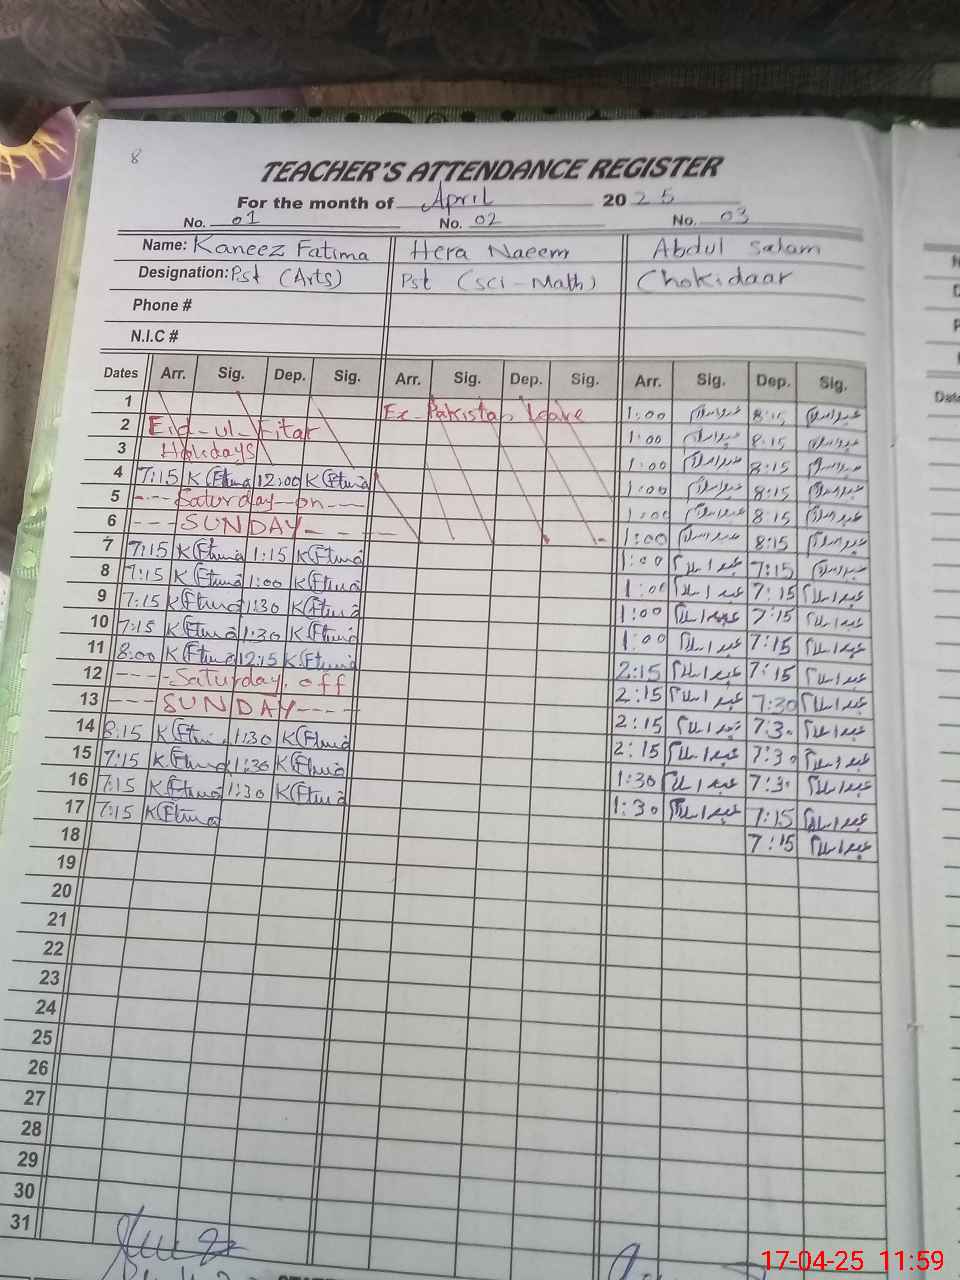 8
TEACHER'S ATTENDANCE REGISTER
For the month of April 2025
No. 01 No. 02 No. 03
Name: Kaneez Fatima Hera Naeem Abdul Salam
Designation: Pst (Arts) Pst (Sci-Math) Chokidaar
Phone #
N.I.C #
Dates Arr. Sig. Dep. Sig. Arr. Sig. Dep. Sig. Arr. Sig. Dep. Sig.
1 Ex-Pakistan Leave 1:00 عبدالسلام 8:15 عبدالسلام
2 Eid-ul-Fitar 1:00 عبدالسلام 8:15 عبدالسلام
3 Holidays 1:00 عبدالسلام 8:15 عبدالسلام
4 7:15 K Ftima 12:00 K Ftima 1:00 عبدالسلام 8:15 عبدالسلام
5 ---- Saturday-on ---- 1:00 عبدالسلام 8:15 عبدالسلام
6 ---- SUNDAY ---- 1:00 عبدالسلام 8:15 عبدالسلام
7 7:15 K Ftima 1:15 K Ftima 1:00 عبدالسلام 7:15 عبدالسلام
8 7:15 K Ftima 1:00 K Ftima 1:00 عبدالسلام 7:15 عبدالسلام
9 7:15 K Ftima 1:30 K Ftima 1:00 عبدالسلام 7:15 عبدالسلام
10 7:15 K Ftima 1:30 K Ftima 1:00 عبدالسلام 7:15 عبدالسلام
11 8:00 K Ftima 12:15 K Ftima 2:15 عبدالسلام 7:15 عبدالسلام
12 ---- Saturday. off 2:15 عبدالسلام 7:30 عبدالسلام
13 ---- SUNDAY ---- 2:15 عبدالسلام 7:30 عبدالسلام
14 8:15 K Ftima 1:30 K Ftima 2:15 عبدالسلام 7:30 عبدالسلام
15 7:15 K Ftima 1:30 K Ftima 1:30 عبدالسلام 7:30 عبدالسلام
16 7:15 K Ftima 1:30 K Ftima 1:30 عبدالسلام 7:15 عبدالسلام
17 7:15 K Ftima 7:15 عبدالسلام
18
19
20
21
22
23
24
25
26
27
28
29
30
31
17-04-25 11:59